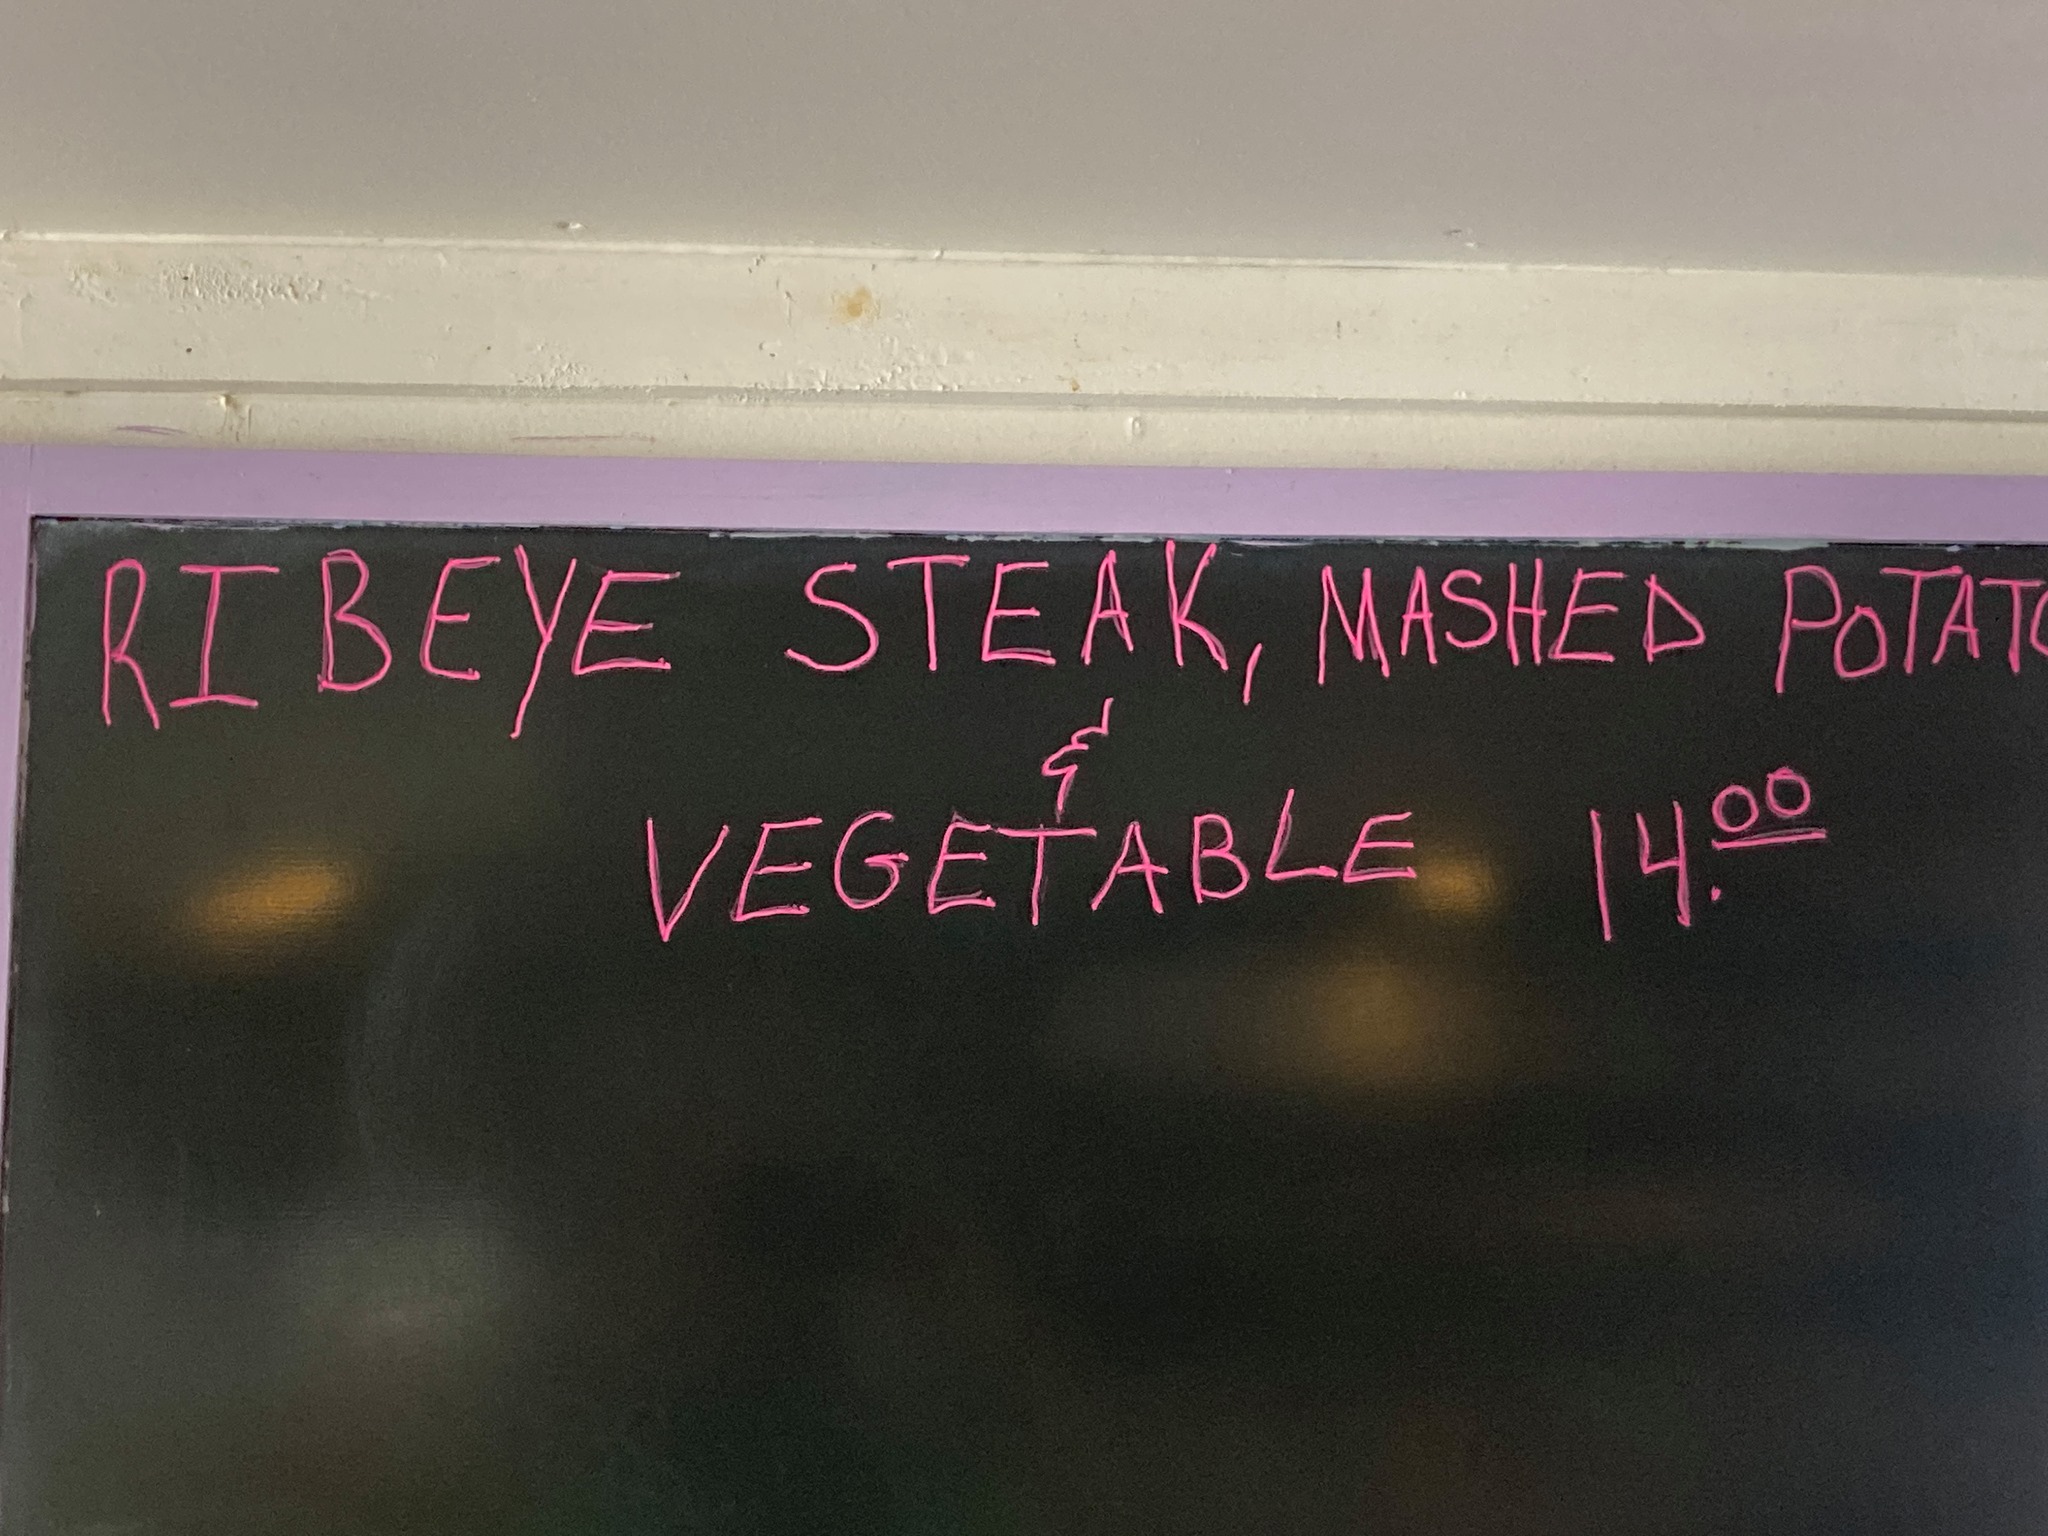 RIBEYE STEAK, MASHED POTATO
&
VEGETABLE 14.00